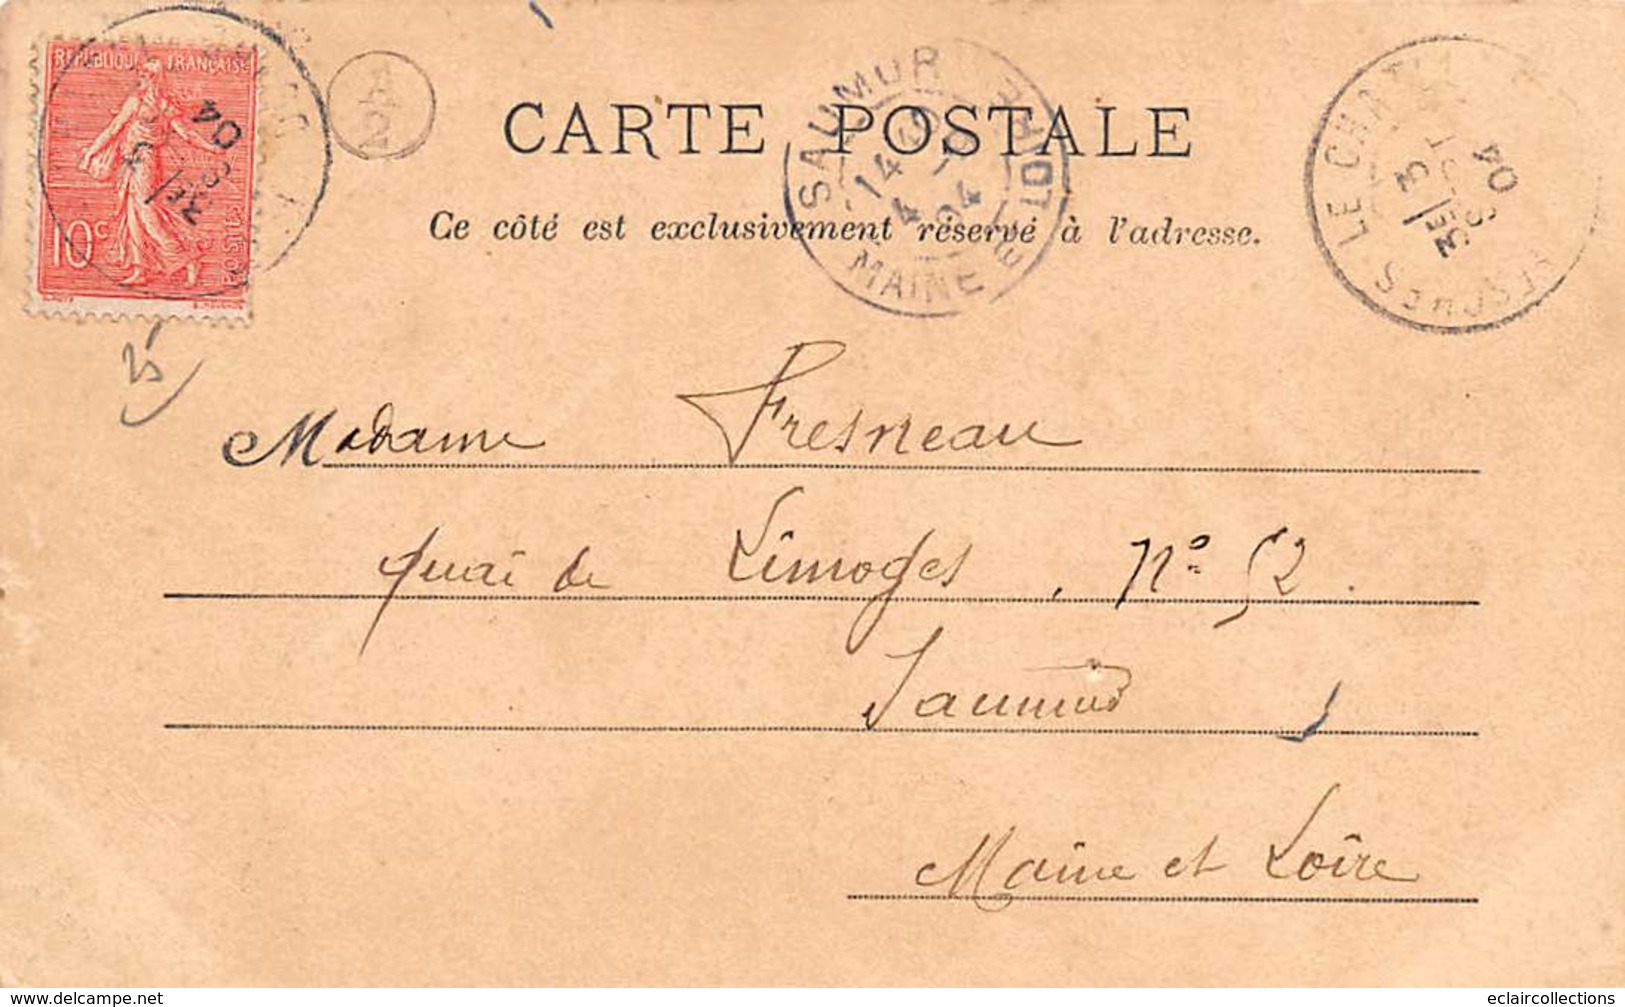 REPUBLIQUE FRANÇAISE
10c
POSTES
CARTE POSTALE
Ce côté est exclusivement réservé à l'adresse.
SAUMUR
14
4
04
MAINE ET LOIRE
LE CHAT
3
04
25
Madame Fresneau
quai de Limoges, N° 52.
Saumur
Maine et Loire
www.delcampe.net
eclaircollections